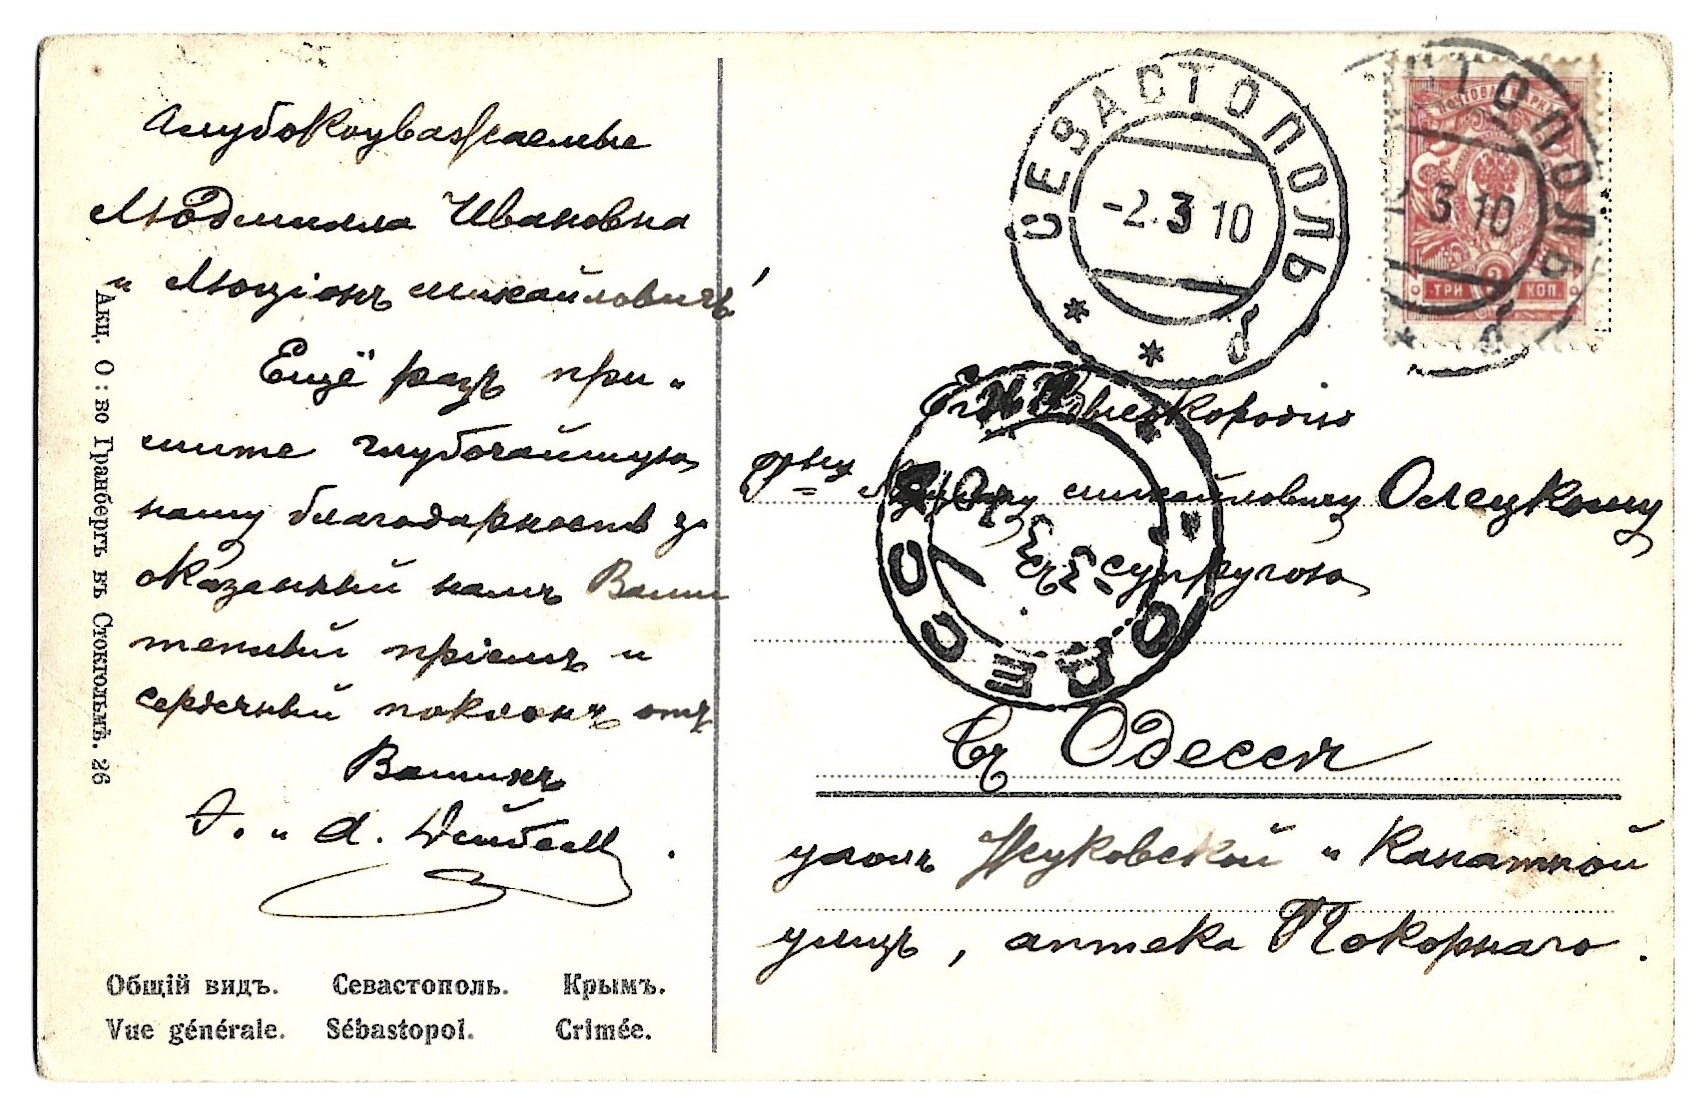 Глубокоуважаемые
Людмилла Ивановна
и Люціонъ Михайловичъ!
Ещё разъ при-
мите глубочайшую
нашу благодарность за
оказанный намъ Вами
теплый пріемъ и
сердечный поклонъ отъ
Вашихъ
и А.
Акц. О:во Гранбергъ въ Стокгольмѣ. 26
Общій видъ. Севастополь. Крымъ.
Vue générale. Sébastopol. Crimée.
СЕВАСТОПОЛЬ
-2.3 10
ПОЧТОВАЯ МАРКА
ТРИ КОП.
ТОПОЛЬ
2 3 10
Его Высокородію
Михайловичу Олецкому
съ супругою
ОДЕССА
въ Одессѣ
уголъ Жуковской и Канатной
улицъ, аптека Покорнаго.